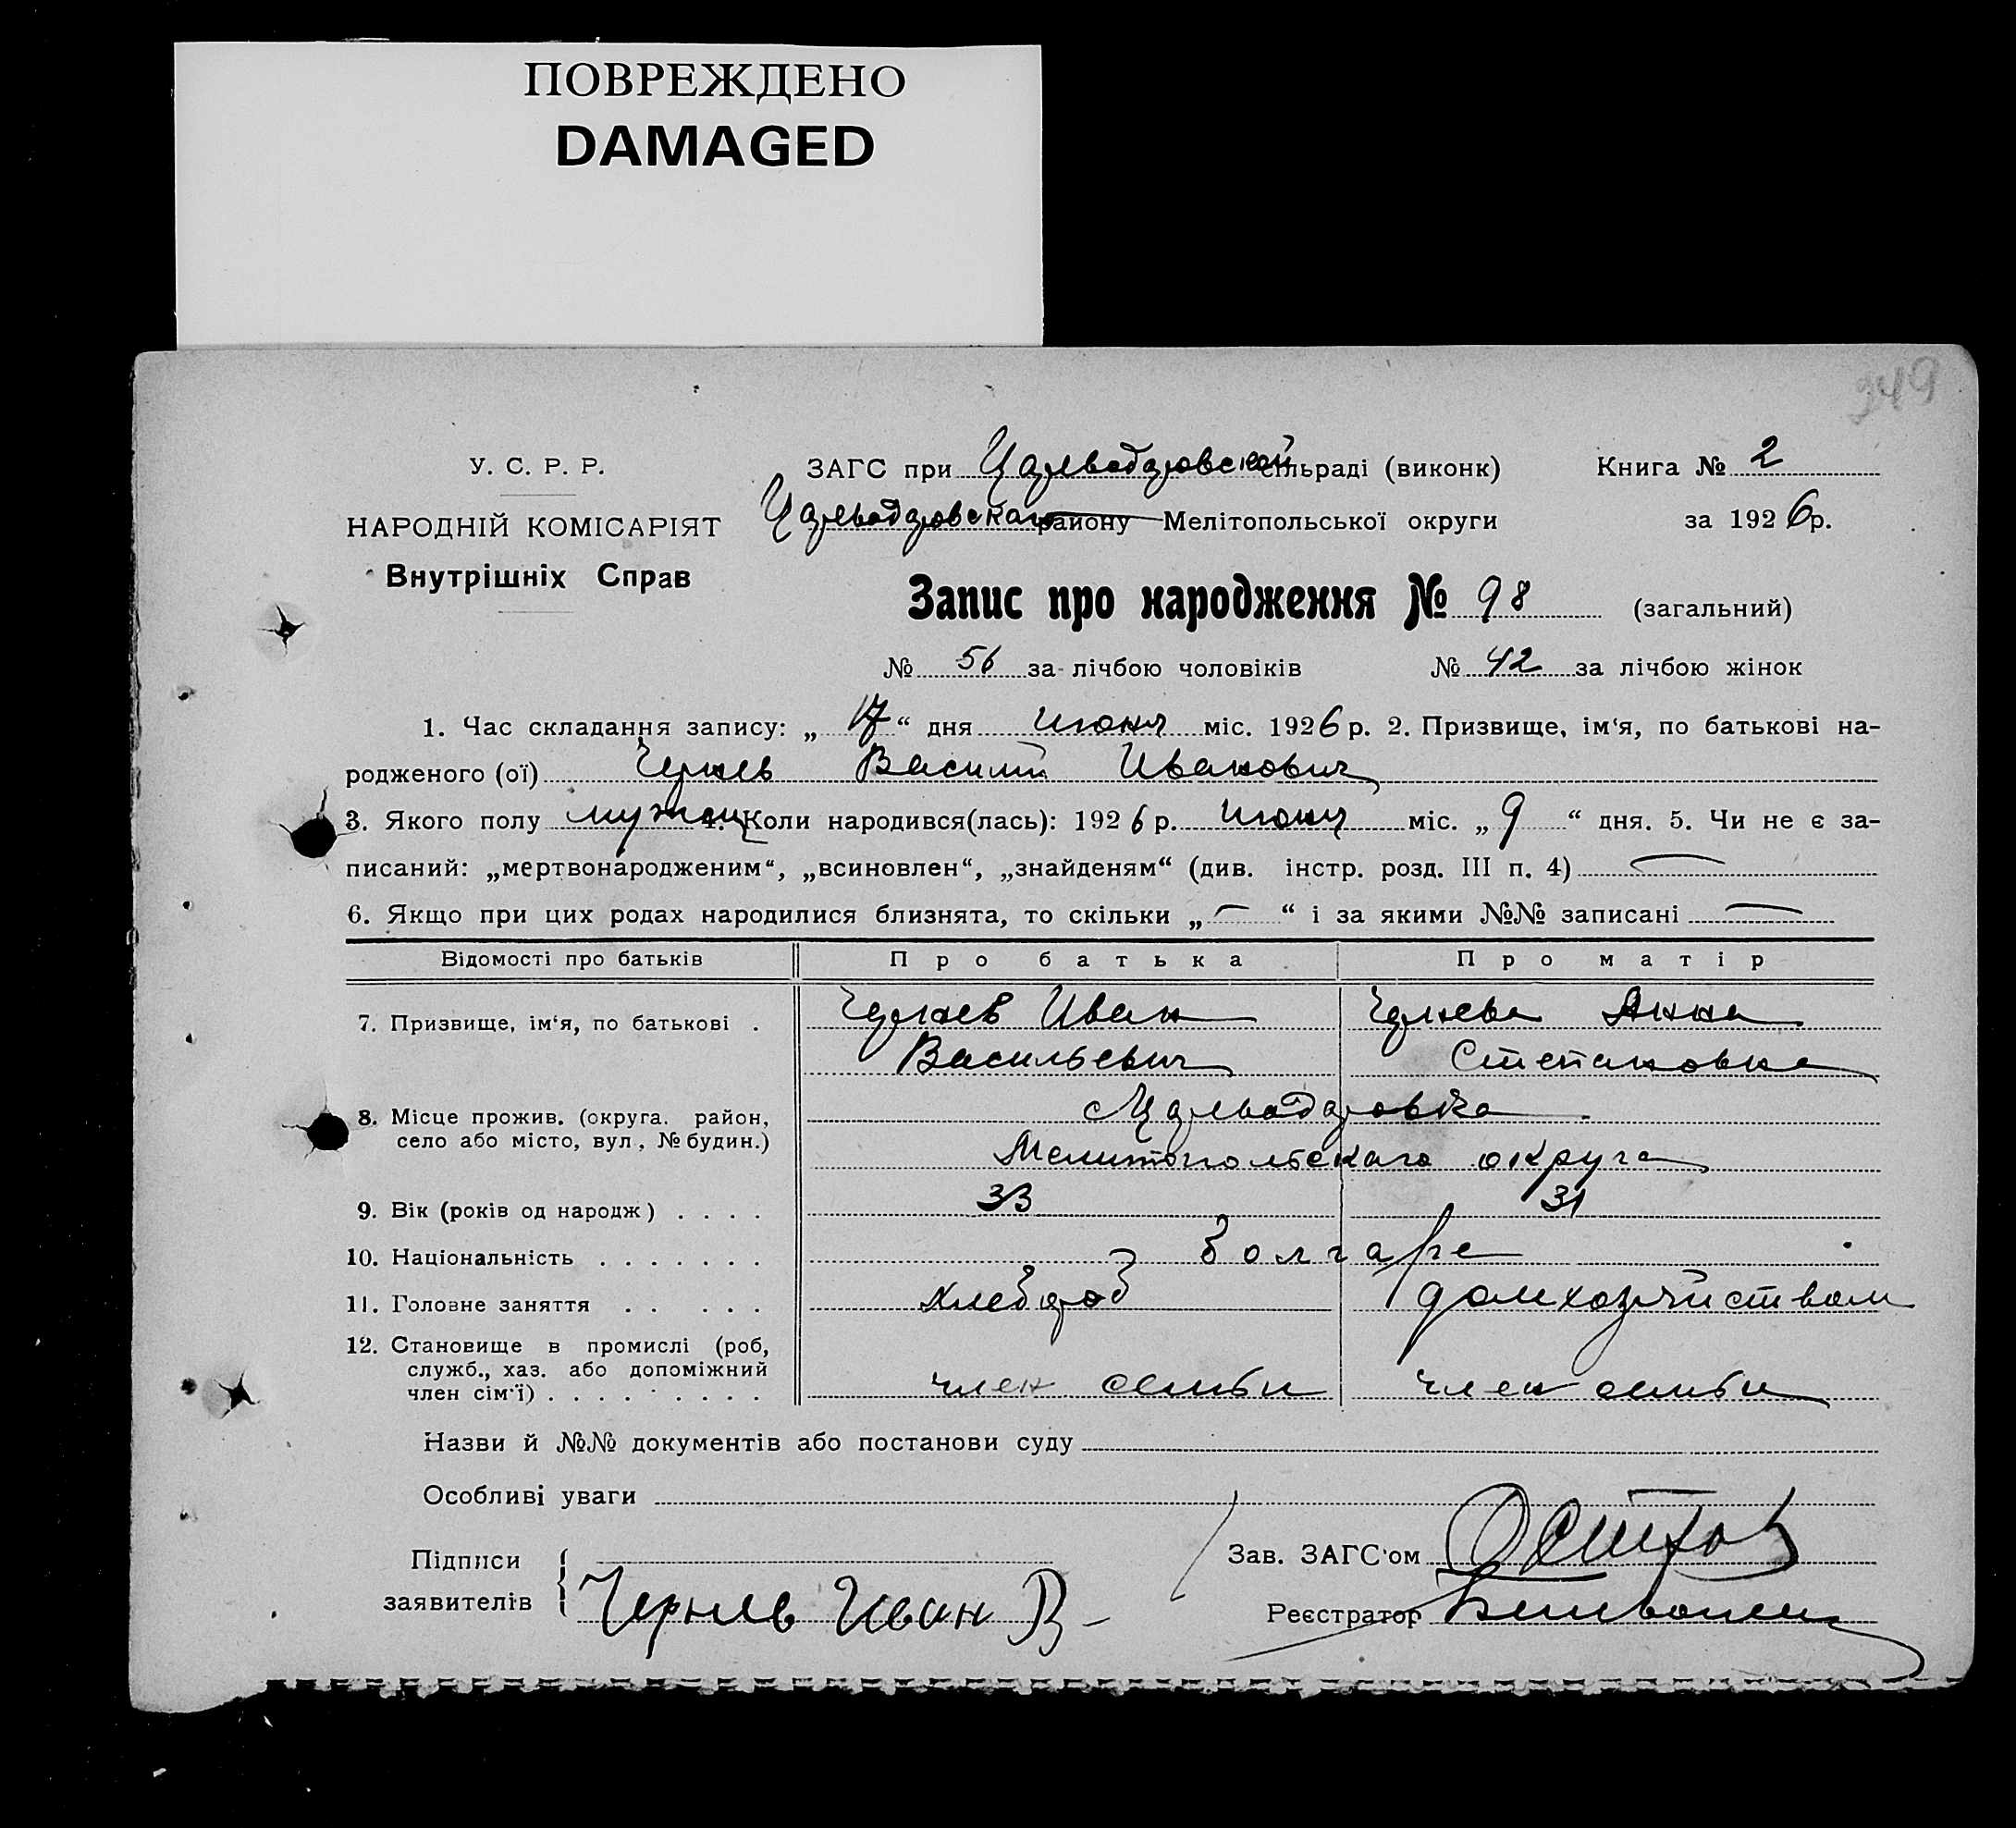 ПОВРЕЖДЕНО
DAMAGED
349
У. С. Р. Р.
ЗАГС при Цареводаровской сільраді (виконк) Книга № 2
НАРОДНІЙ КОМІСАРІЯТ
району Мелітопольської округи за 1926 р.
Внутрішніх Справ
Запис про народження № 98 (загальний)
№ 56 за лічбою чоловіків № 42 за лічбою жінок
1. Час складання запису: „17“ дня июня міс. 1926 р. 2. Призвище, ім‘я, по батькові на-
родженого (ої) Чернев Василий Иванович
3. Якого полу мужск 4. Коли народився(лась): 1926 р. июня міс. „9“ дня. 5. Чи не є за-
писаний: „мертвонародженим“, „всиновлен“, „знайденям“ (див. інстр. розд. III п. 4) —
6. Якщо при цих родах народилися близнята, то скільки „—“ і за якими №№ записані —
Відомості про батьків Про батька Про матір
7. Призвище, ім‘я, по батькові . Чернев Иван Чернева Анна
Васильевич Степановна
8. Місце прожив. (округа. район,
село або місто, вул, № будин.)
Мелитопольскаго округа
9. Вік (років од народж) . . . . 33 31
10. Національність . . . . . . . болгаре
11. Головне заняття . . . . . хлебороб домхозяйством
12. Становище в промислі (роб,
служб., хаз. або допоміжний
член сім‘ї) . . . . . . . . . член семьи член семьи
Назви й №№ документів або постанови суду
Особливі уваги
Підписи
Зав. ЗАГС‘ом
заявителів Чернев Иван В
Реєстратор